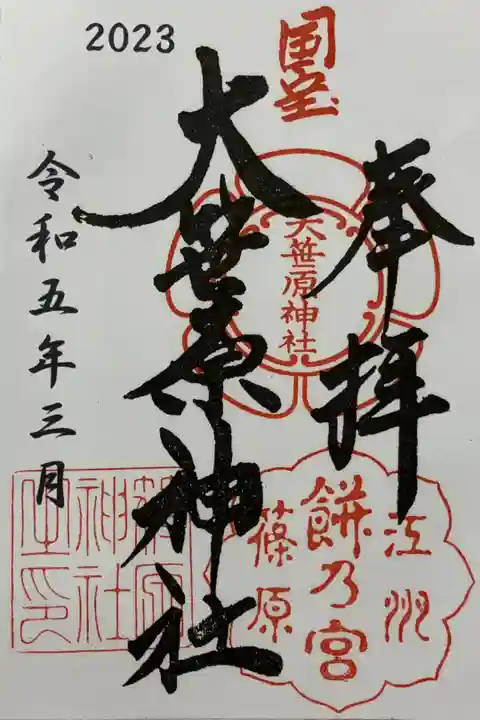 2023
国宝
奉拝
大笹原神社
大笹原神社
江州
餅乃宮
篠原
令和五年三月
神社